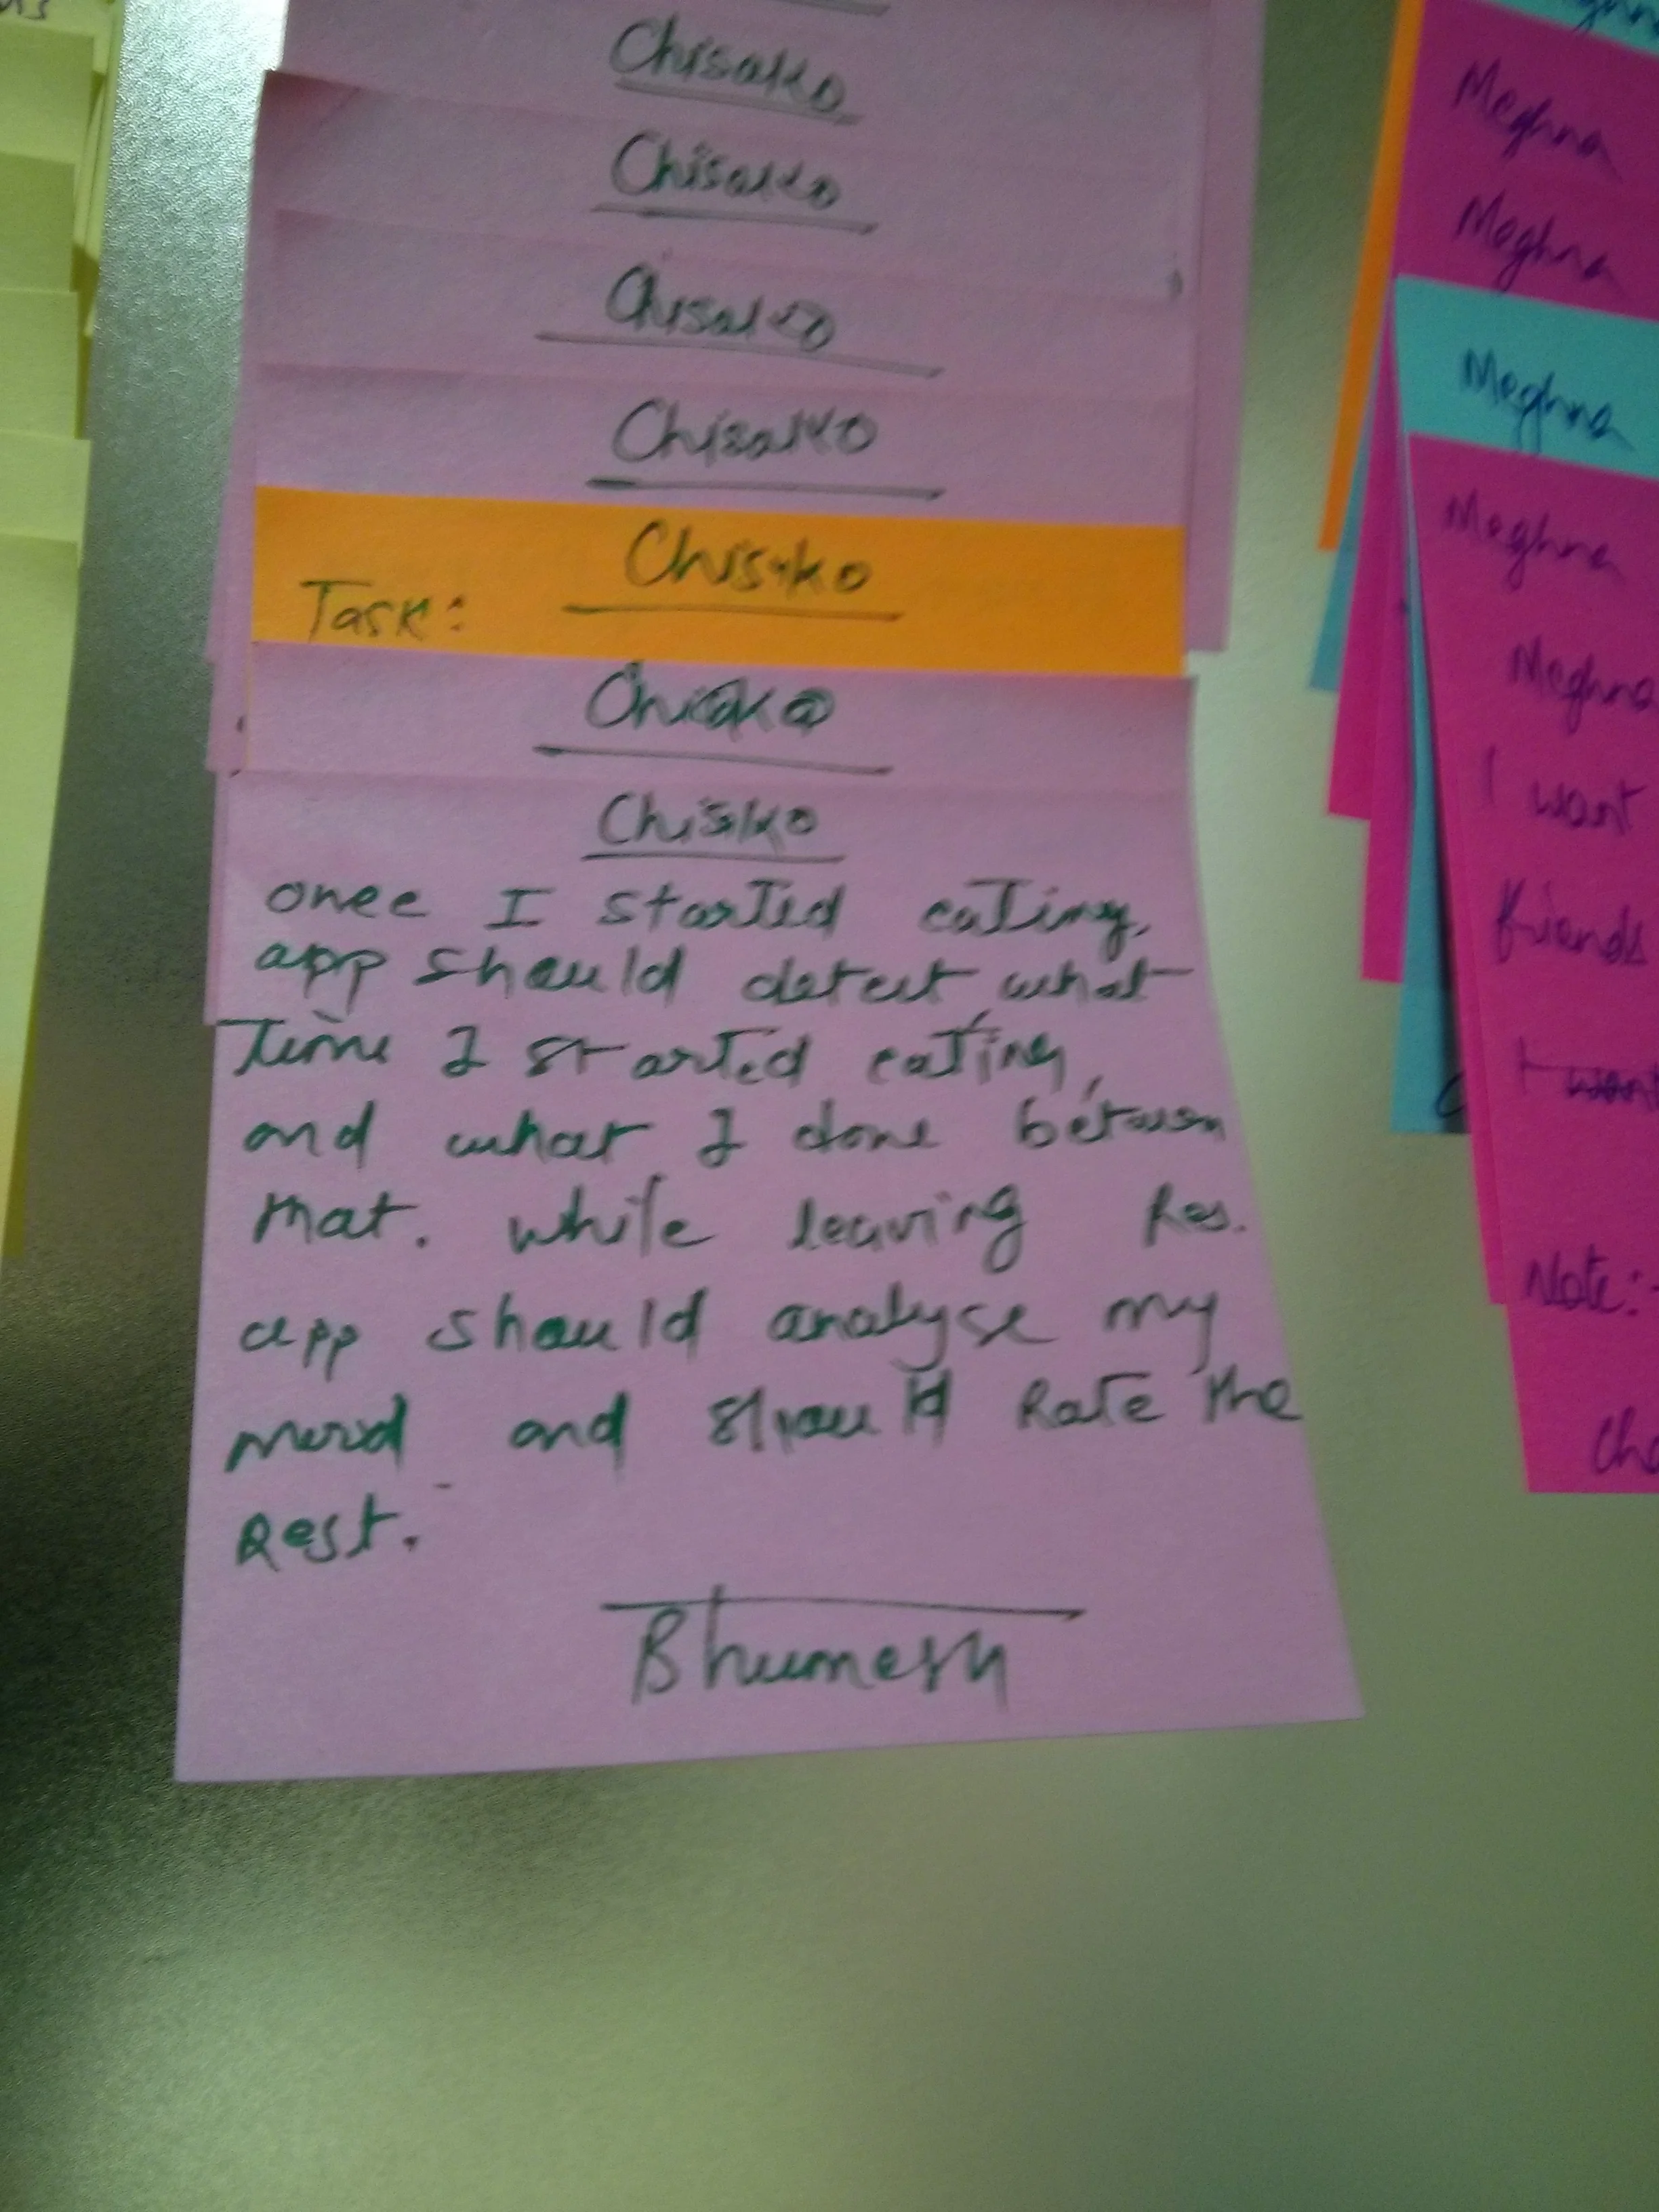 Chisako
Chisako
Chisako
Chisako
Chisako
Task:
Chisako
Chisko
once I started eating,
app should detect what
time I started eating,
and what I done between
that. while leaving Res.
app should analyse my
mood and should Rate the
Rest.
Bhumesh
Meghna
Meghna
Meghna
Meghna
Meghna
I want
friends
I want
Note:-